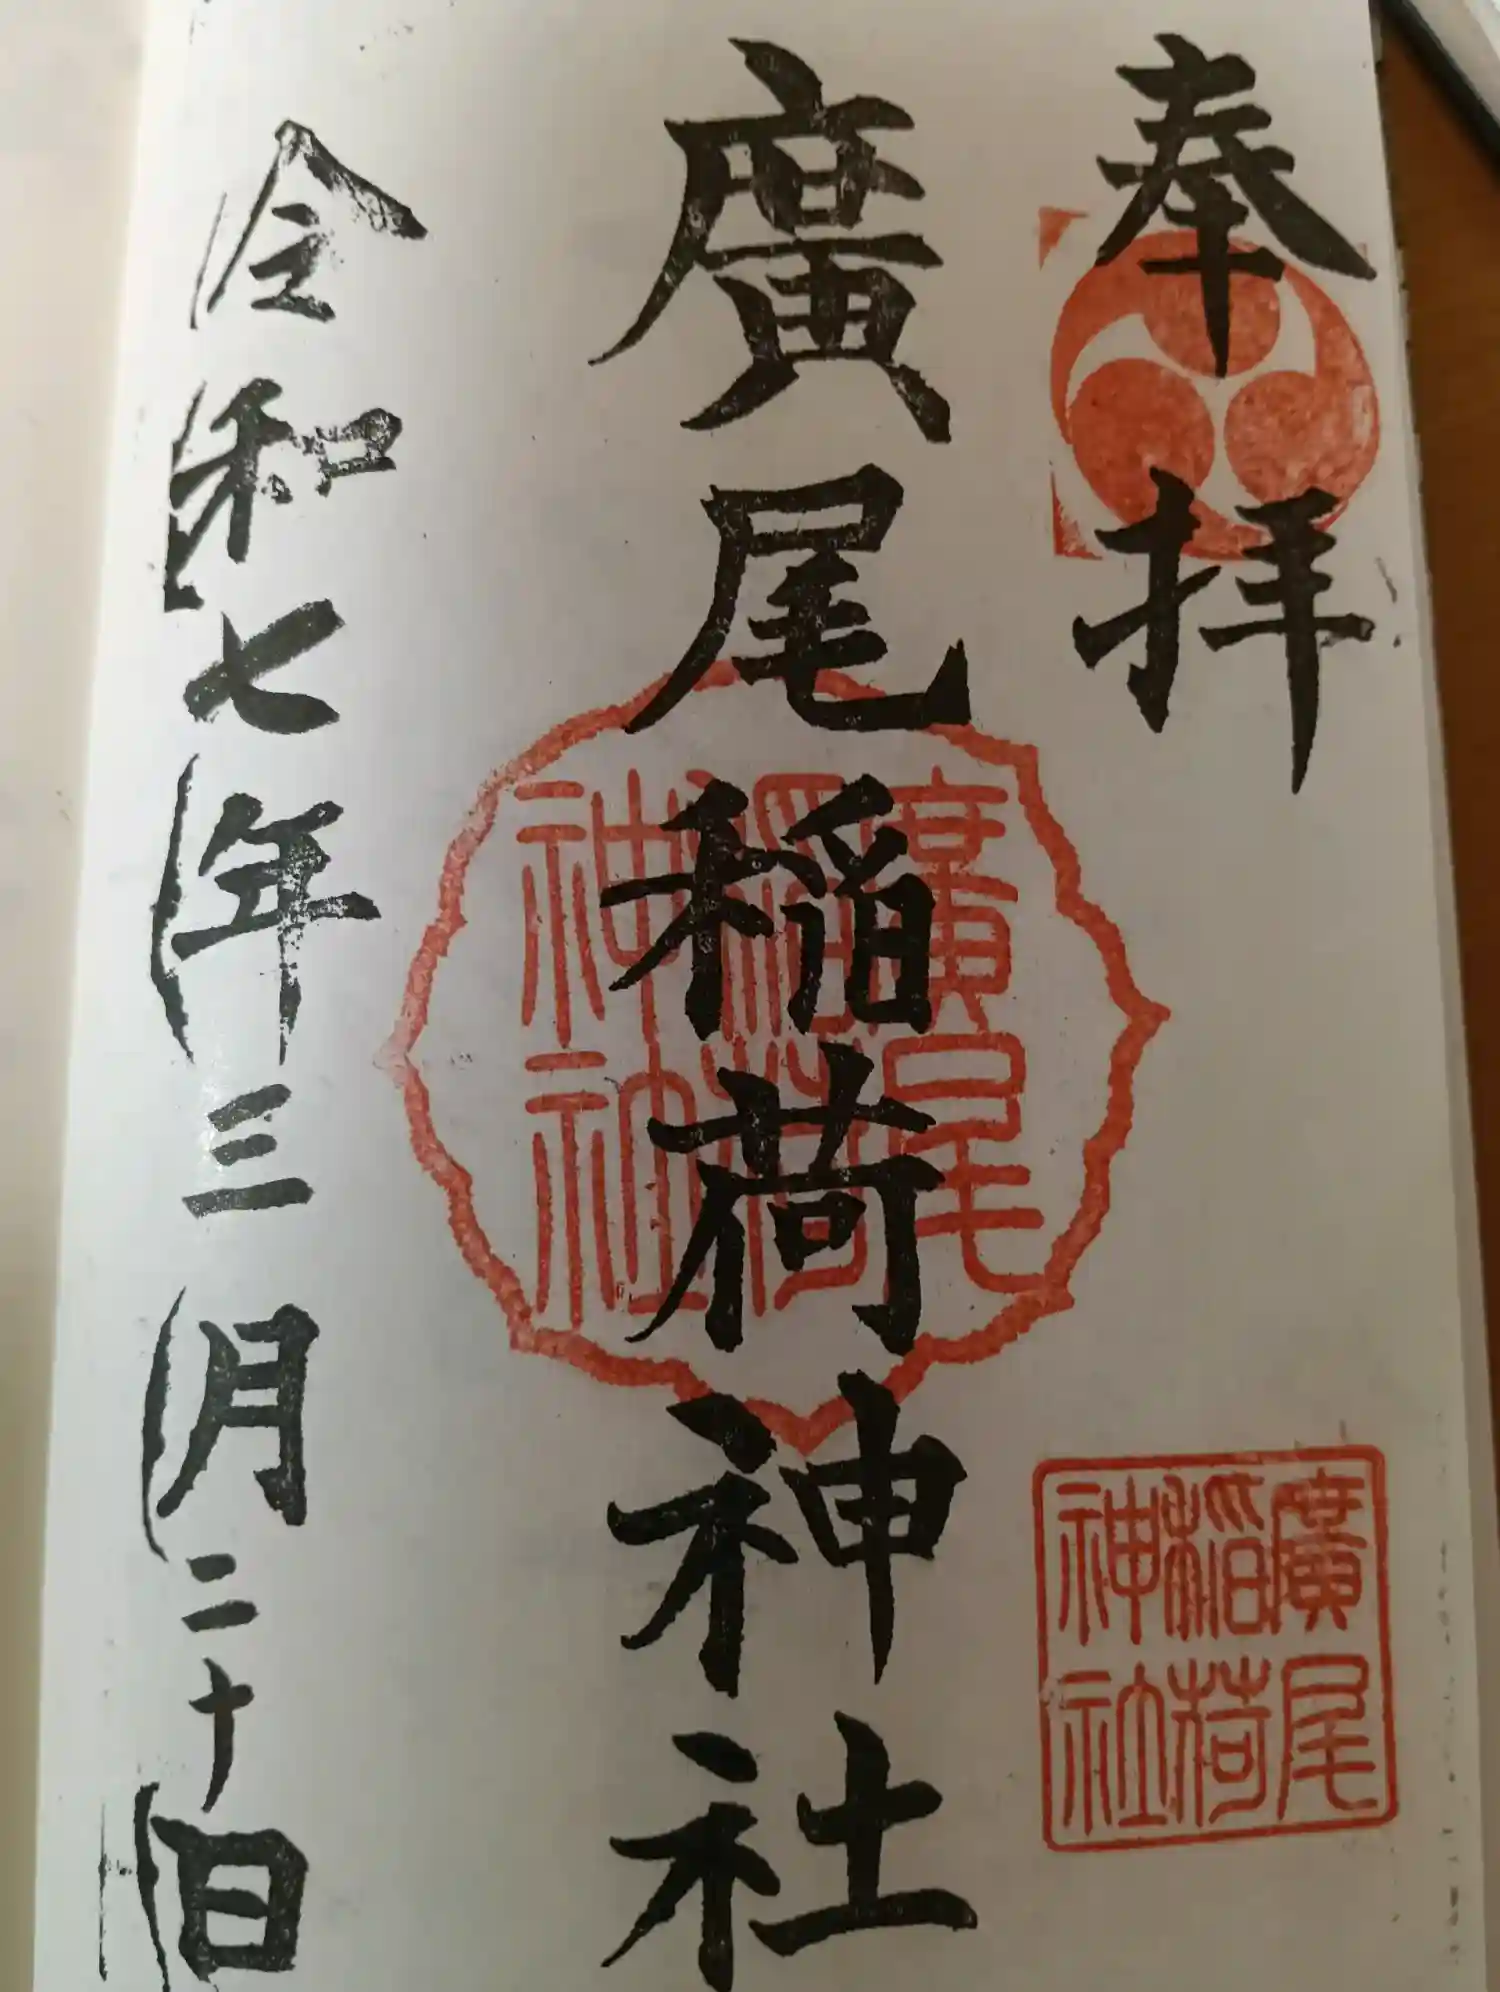 奉拝
廣尾稲荷神社
令和七年三月二十日
廣尾
稲荷
神社
廣尾
稲荷
神社